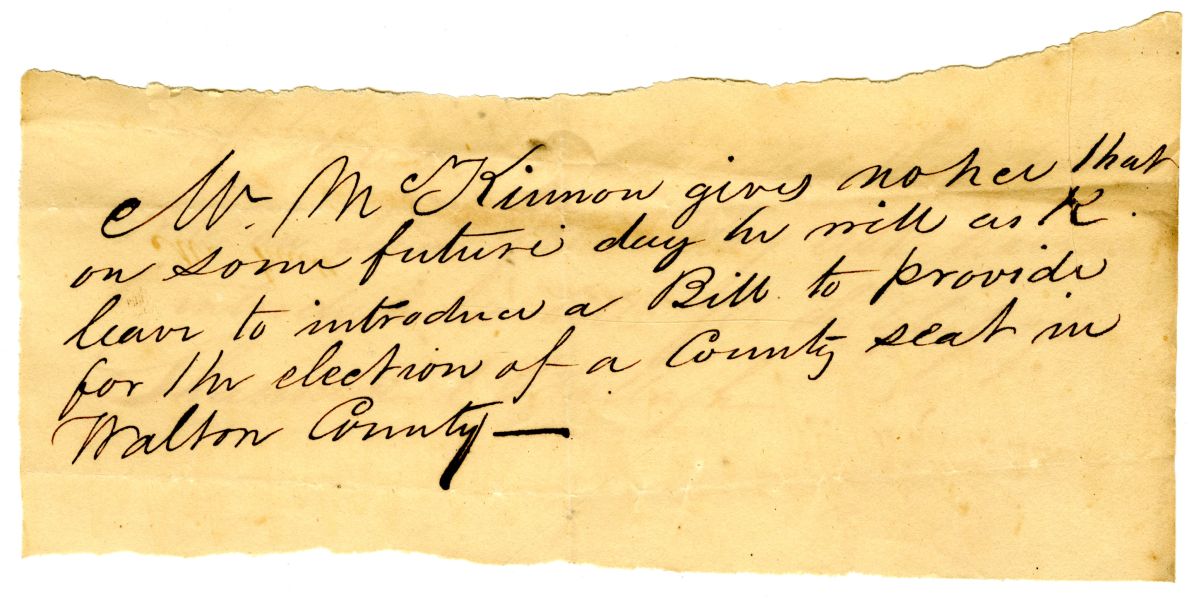 Mr. McKinnon gives notice that
on some future day he will ask
leave to introduce a Bill to provide
for the election of a County seat in
Walton County —